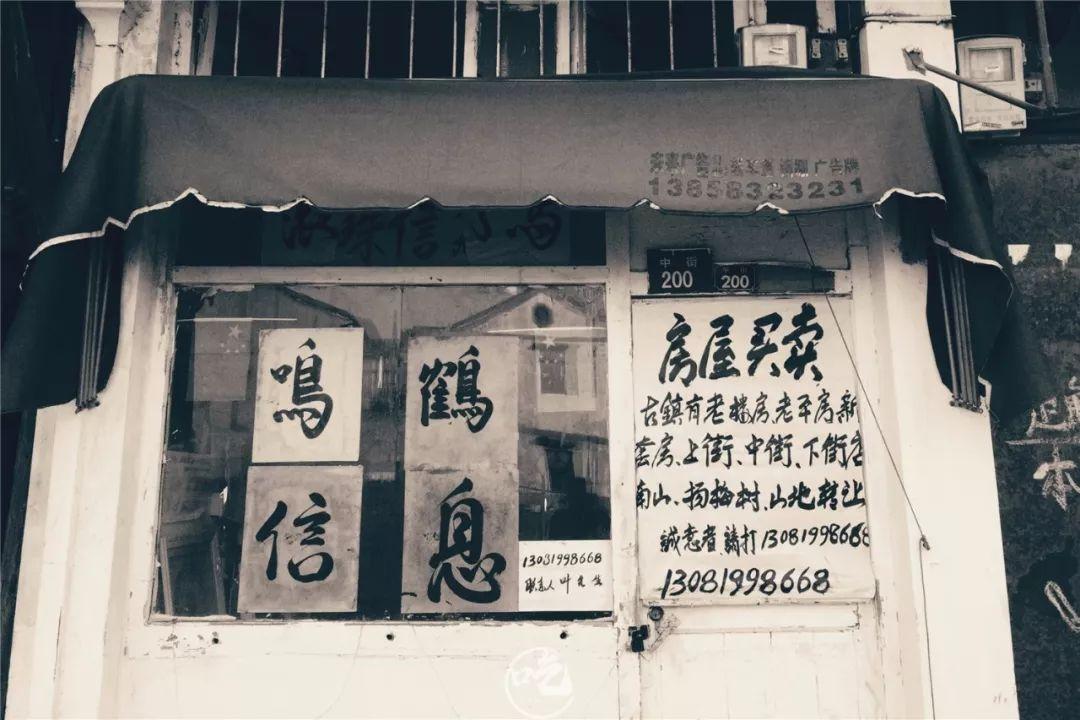 广告牌
13858323231
中街
200
200
鳴
鶴
信
息
13081998668
联系人 叶先生
房屋买卖
古鎮有老楼房.老平房新
套房、上街、中街、下街店
南山、杨梅树、山地转让
誠意者 請打13081998668
13081998668
吃